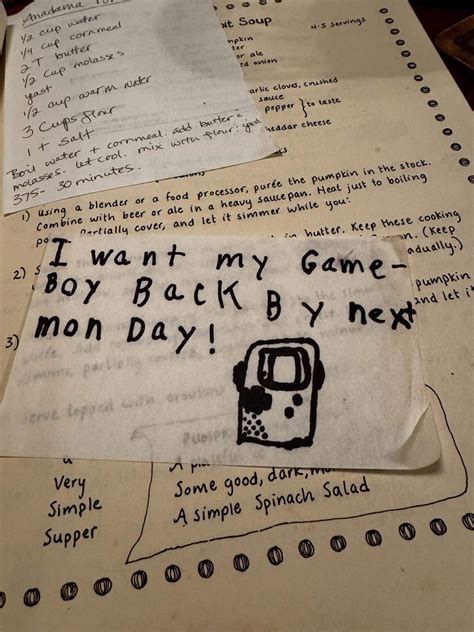 Anadama
1/2 cup water
1/4 cup cornmeal
2 T butter
1/2 cup molasses
yeast
1/2 cup warm water
3 cups flour
1 t salt
Boil water + cornmeal. add butter +
molasses. let cool. mix with flour, yeast
375- 30 minutes.
Soup
4-5 servings
mpkin
ter
or ale
ed onion
arlic cloves, crushed
sauce
pepper } to taste
heddar cheese
1) Using a blender or a food processor, purée the pumpkin in the stock.
Combine with beer or ale in a heavy saucepan. Heat just to boiling
Partially cover, and let it simmer while you:
in butter. Keep these cooking
(Keep
adually.)
2)
pumpkin
and let it
I want my Game-
BOY BACK BY next
mon DAY!
3)
erve topped with croutons
Very
Simple
Supper
Some good, dark,
A simple Spinach Salad